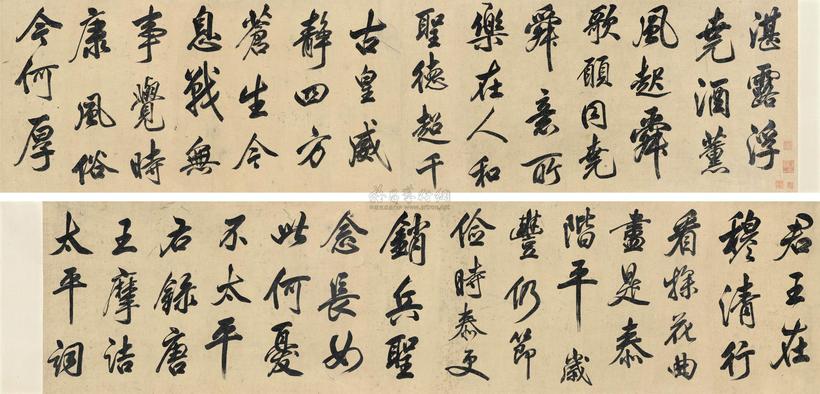 湛露浮
堯酒薰
風起舜
歌願同堯
舜意所
樂在人和
聖德超千
古皇威
靜四方
蒼生今
息戰無
事覺時
康風俗
今何厚
君王在
穆清行
看採花曲
盡是泰
階平歲
豐仍節
儉時泰更
銷兵聖
念長如
此何憂
不太平
右錄唐
王摩詰
太平詞